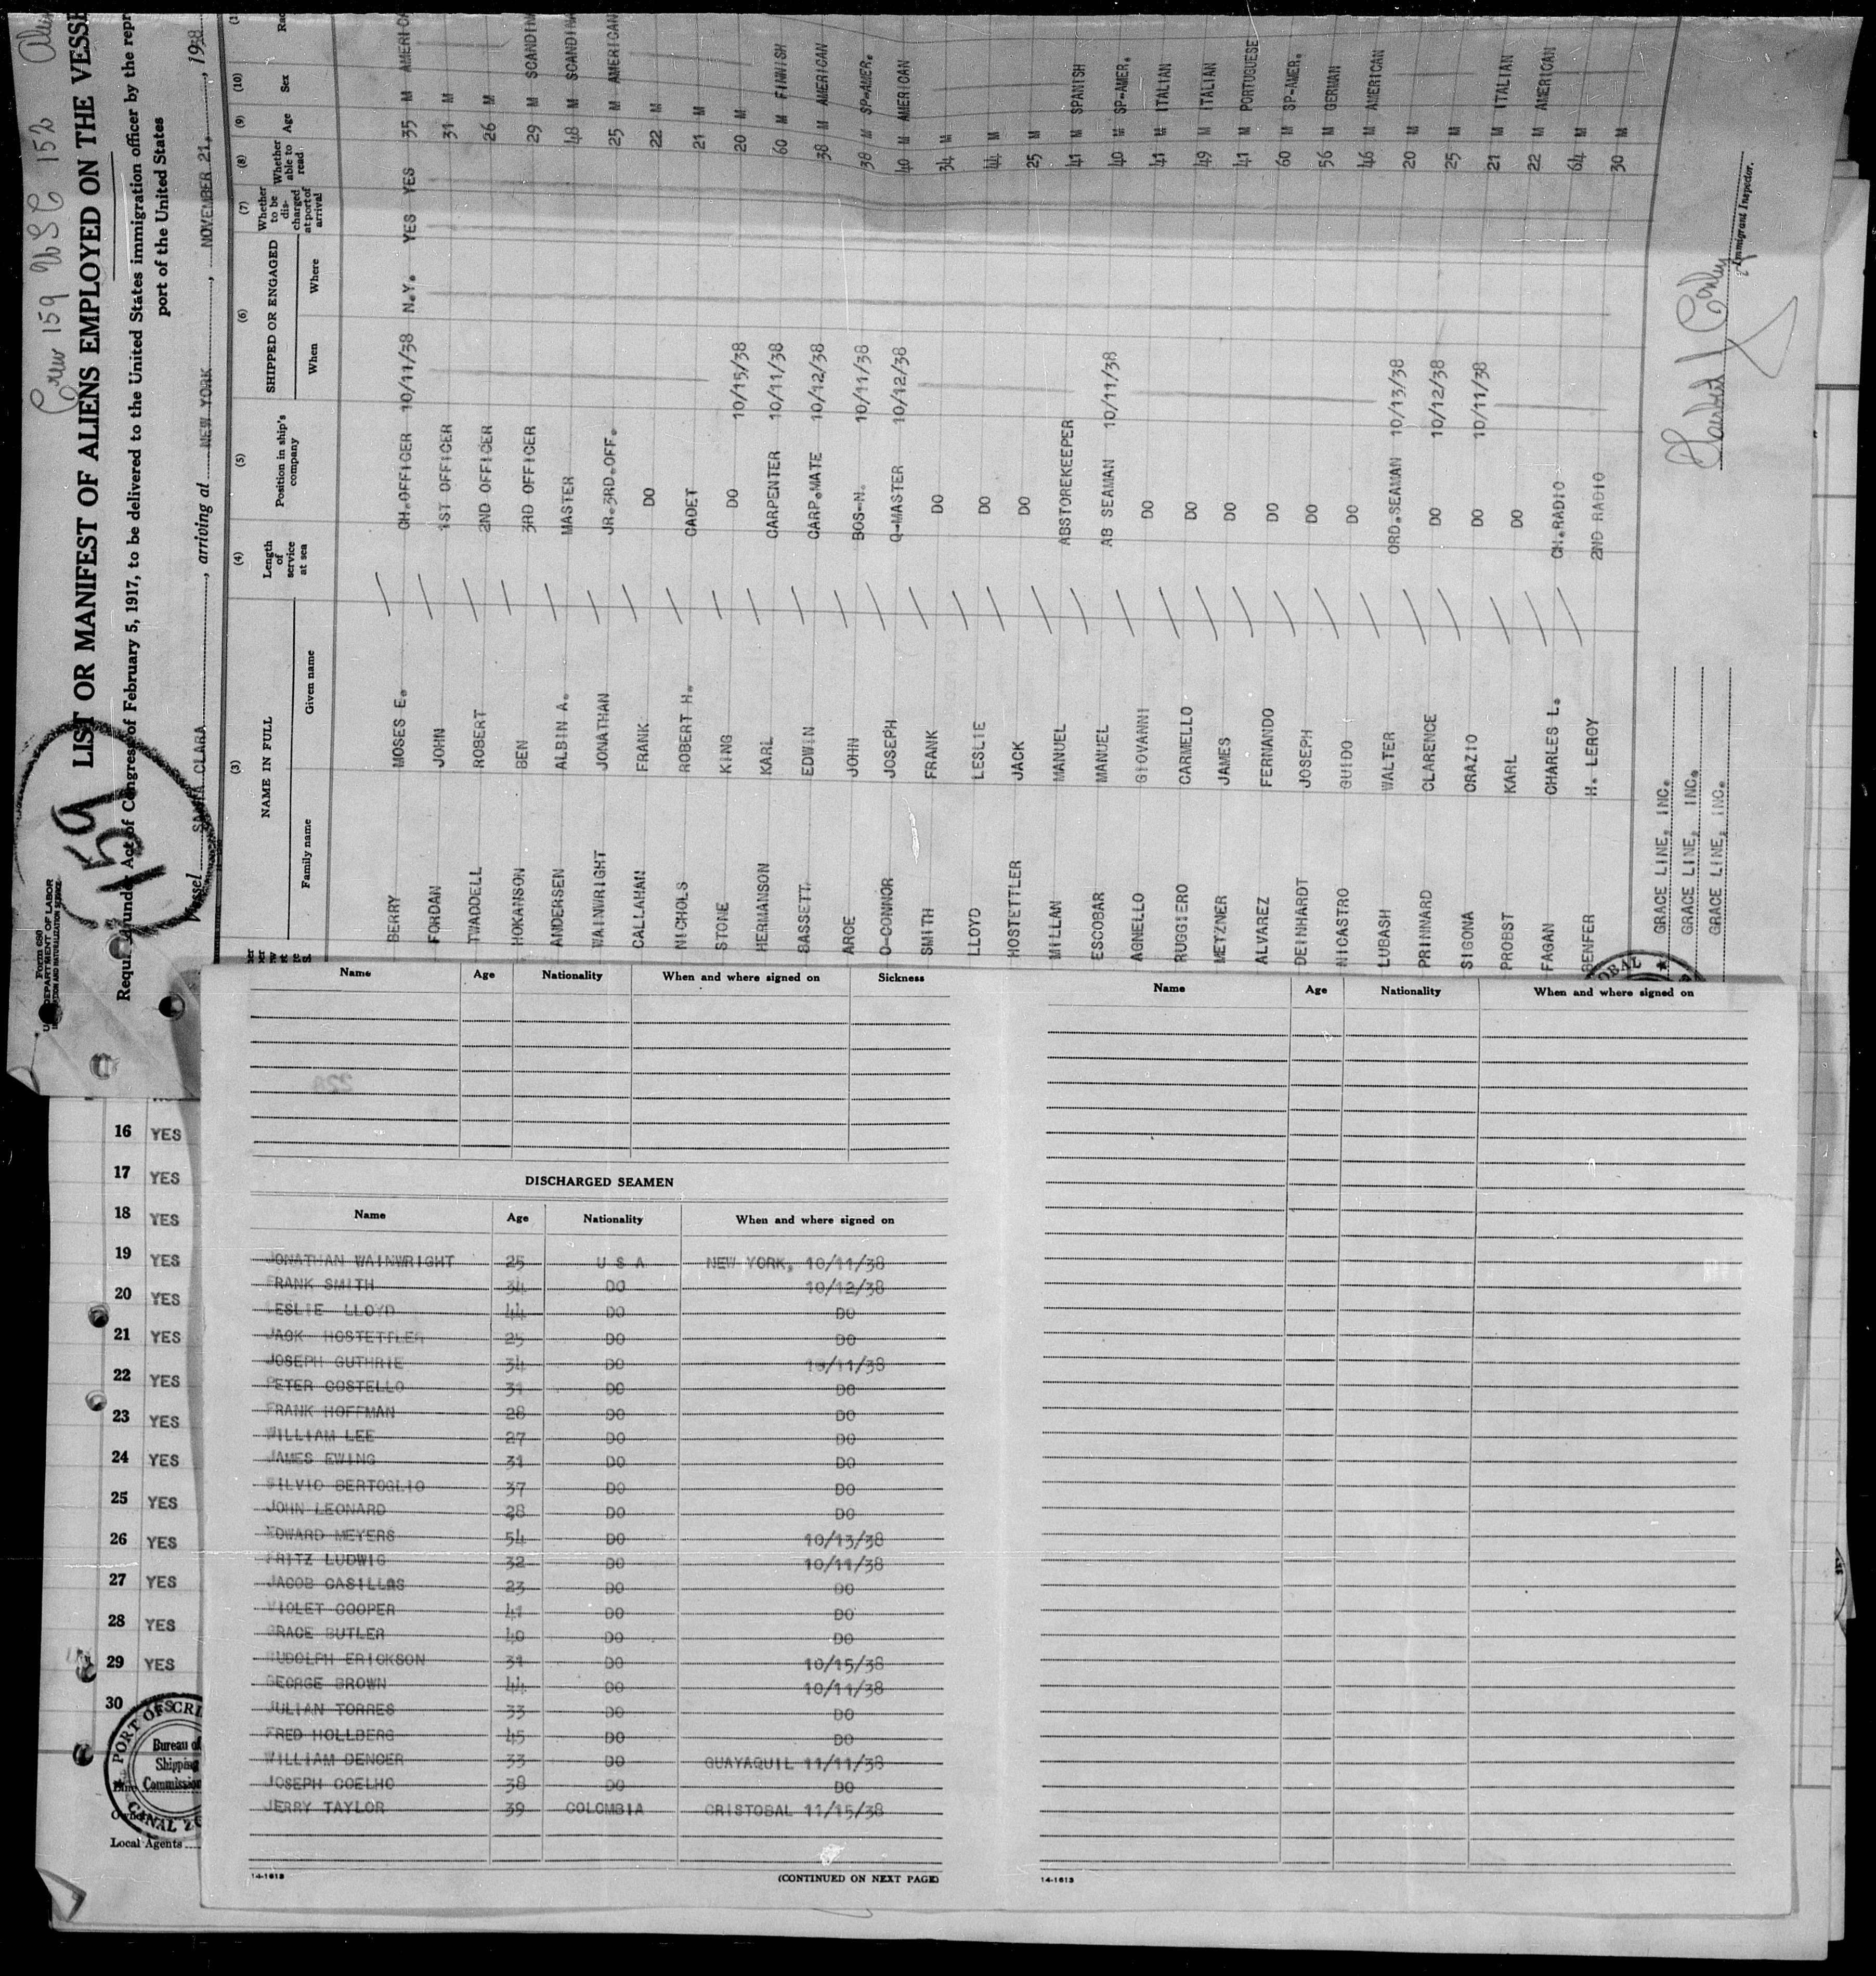 Crew 159 USC 152
159
Form 680
DEPARTMENT OF LABOR
LIST OR MANIFEST OF ALIENS EMPLOYED ON THE VESSE
Act of Congress of February 5, 1917, to be delivered to the United States immigration officer by the repr
port of the United States
Vessel SANTA CLARA, arriving at NEW YORK, NOVEMBER 21, 1938
(3) (4) (5) (6) (7) (8) (9) (10)
NAME IN FULL Length of service at sea Position in ship's company SHIPPED OR ENGAGED Whether to be discharged at port of arrival Whether able to read Age Sex
Family name Given name When Where
BERRY MOSES E. CH.OFFICER 10/11/38 N.Y. YES YES 35 M AMERICA
FORDAN JOHN 1ST OFFICER 31 M
TWADDELL ROBERT 2ND OFFICER 26 M
HOKANSON BEN 3RD OFFICER 29 M SCANDIN
ANDERSEN ALBIN A. MASTER 48 M SCANDIN
WAINWRIGHT JONATHAN JR.3RD.OFF. 25 M AMERICAN
CALLAHAN FRANK DO 22 M
NICHOLS ROBERT H. CADET 21 M
STONE KING DO 10/15/38 20 M
HERMANSON KARL CARPENTER 10/11/38 60 M FINNISH
BASSETT EDWIN CARP.MATE 10/12/38 38 M AMERICAN
ARCE JOHN BOS-N. 10/11/38 38 M SP-AMER.
O-CONNOR JOSEPH Q-MASTER 10/12/38 40 M AMERICAN
SMITH FRANK DO 34 M
LLOYD LESLIE DO 44 M
HOSTETTLER JACK DO 25 M
MILLAN MANUEL ABSTOREKEEPER 41 M SPANISH
ESCOBAR MANUEL AB SEAMAN 10/11/38 40 M SP-AMER.
AGNELLO GIOVANNI DO 41 M ITALIAN
RUGGIERO CARMELLO DO 49 M ITALIAN
METZNER JAMES DO 41 M PORTUGUESE
ALVAREZ FERNANDO DO 60 M SP-AMER.
DEINHARDT JOSEPH DO 56 M GERMAN
NICASTRO GUIDO DO 46 M AMERICAN
LUBASH WALTER ORD.SEAMAN 10/13/38 20 M
PRINNARD CLARENCE DO 10/12/38 25 M
SIGONA ORAZIO DO 10/11/38 21 M ITALIAN
PROBST KARL DO 22 M AMERICAN
FAGAN CHARLES L. CH.RADIO 64 M
BENFER H. LEROY 2ND RADIO 30 M
GRACE LINE, INC.
GRACE LINE, INC.
GRACE LINE, INC.
Immigrant Inspector.
Name Age Nationality When and where signed on Sickness
DISCHARGED SEAMEN
Name Age Nationality When and where signed on
JONATHAN WAINWRIGHT 25 U S A NEW YORK, 10/11/38
FRANK SMITH 34 DO 10/12/38
LESLIE LLOYD 44 DO DO
JACK HOSTETTLER 25 DO DO
JOSEPH GUTHRIE 34 DO 10/11/38
PETER COSTELLO 31 DO DO
FRANK HOFFMAN 28 DO DO
WILLIAM LEE 27 DO DO
JAMES EWING 31 DO DO
SILVIO BERTOGLIO 37 DO DO
JOHN LEONARD 28 DO DO
EDWARD MEYERS 54 DO 10/13/38
FRITZ LUDWIG 32 DO 10/11/38
JACOB CASILLAS 23 DO DO
VIOLET COOPER 41 DO DO
GRACE BUTLER 40 DO DO
RUDOLPH ERICKSON 31 DO 10/15/38
GEORGE BROWN 44 DO 10/11/38
JULIAN TORRES 33 DO DO
FRED HOLLBERG 45 DO DO
WILLIAM DENCER 33 DO GUAYAQUIL 11/11/38
JOSEPH COELHO 38 DO DO
JERRY TAYLOR 39 COLOMBIA CRISTOBAL 11/15/38
14-1613 (CONTINUED ON NEXT PAGE)
Name Age Nationality When and where signed on
14-1613
16 YES
17 YES
18 YES
19 YES
20 YES
21 YES
22 YES
23 YES
24 YES
25 YES
26 YES
27 YES
28 YES
29 YES
30
PORT OF CRI
Bureau of
Shipping
Commission
CANAL Z
Local Agents